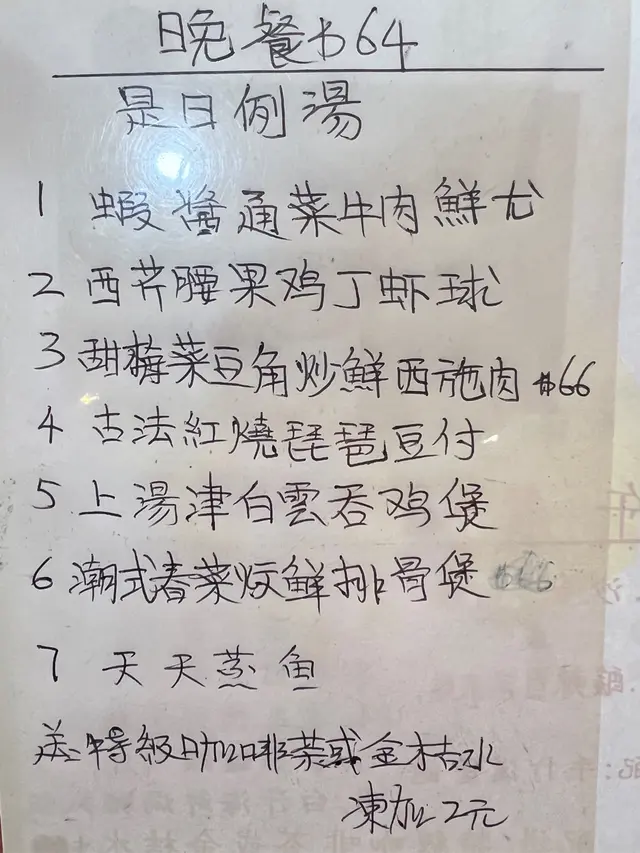 晚餐$64
是日例湯
1 蝦醬通菜牛肉鮮尤
2 西芹腰果鸡丁虾球
3 甜梅菜豆角炒鮮西施肉 $66
4 古法紅燒琵琶豆付
5 上湯津白雲吞鸡煲
6 潮式春菜炆鮮排骨煲 $66
7 天天蒸魚
送:特級咖啡茶或金桔水
凍加2元